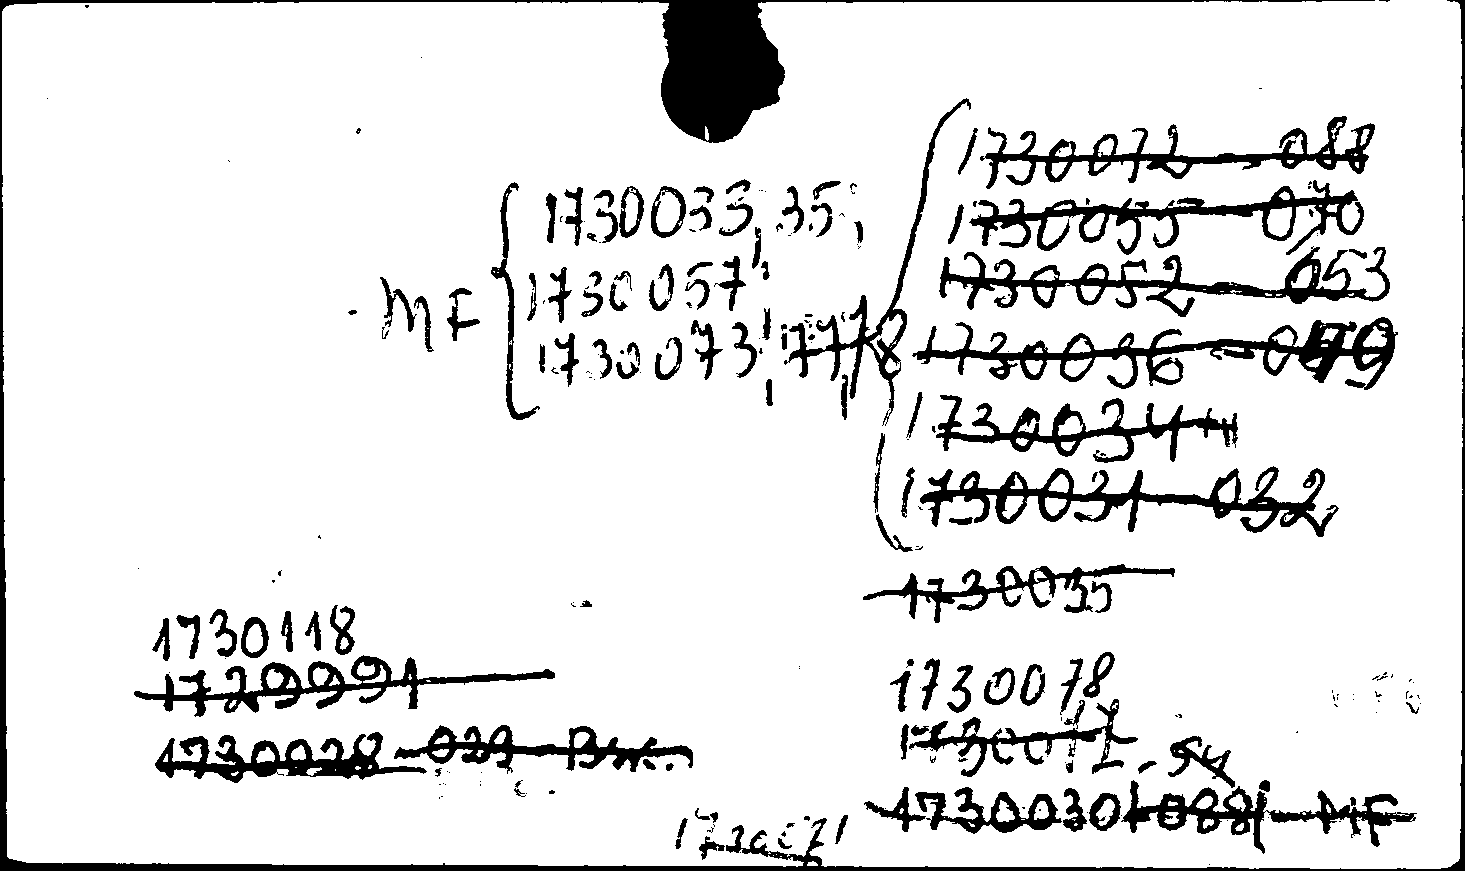 MF { 1730033, 35,
1730057,
1730073, 77, 78
1730072 - 088
1730055 - 070
1730052 - 053
1730036 - 049
1730034
1730031 - 032
1730035
1730118
1729991
1730028 - 029 -
1730078
1730077 - 54
1730030 - 088 - MF